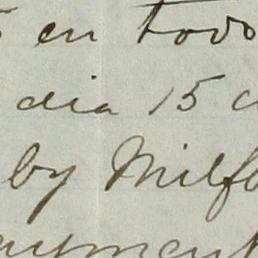 en todo
dia 15
by Milfo
ayment